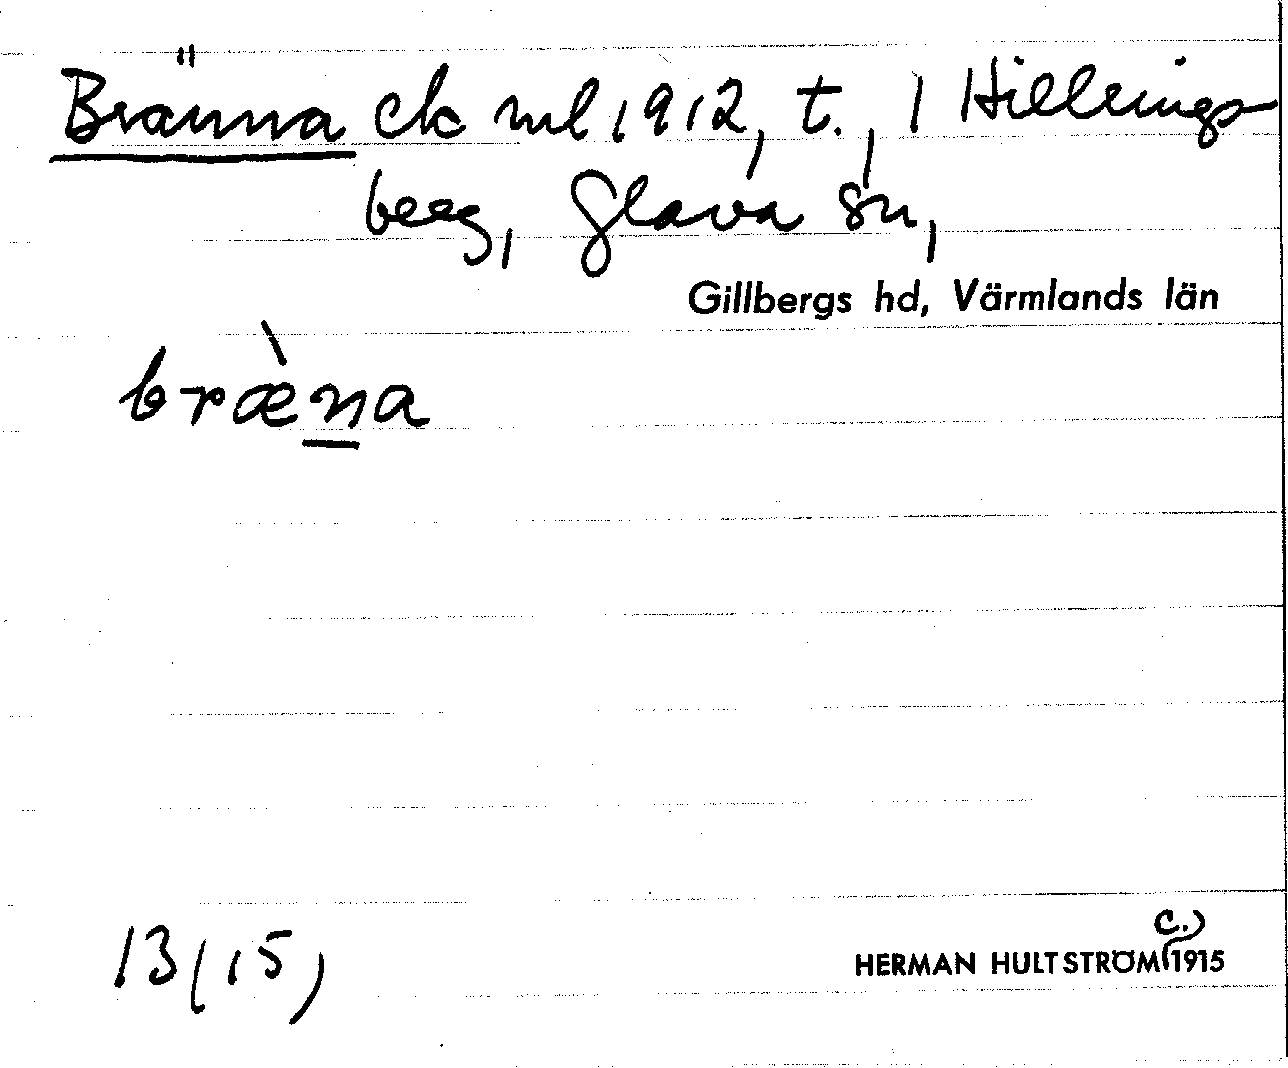 Bränna ek ml 1912, t., 1 Hillrings
berg, Glava sn,
Gillbergs hd, Värmlands län
bræ̀n̲a
13(15)
c.)
HERMAN HULTSTRÖM (1915